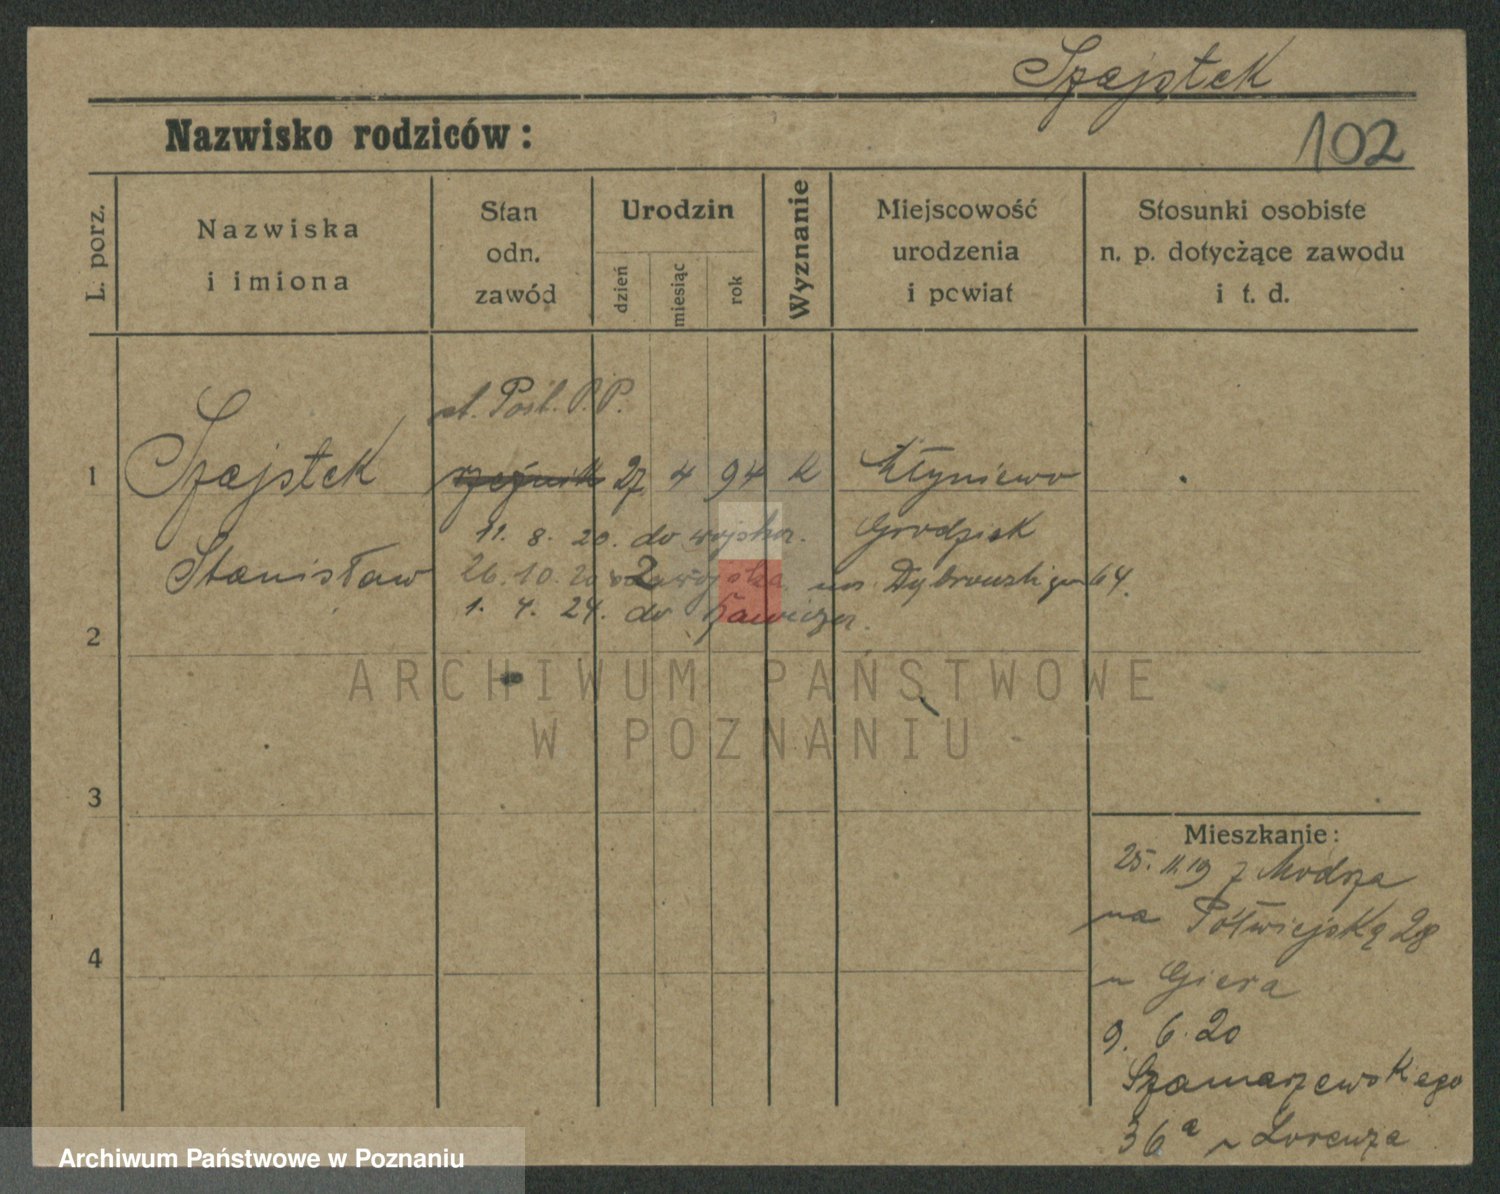 Szajstek
Nazwisko rodziców:
102
L. porz.
Nazwiska
i imiona
Stan
odn.
zawód
Urodzin
dzień
miesiąc
rok
Wyznanie
Miejscowość
urodzenia
i powiat
Stosunki osobiste
n. p. dotyczące zawodu
i t. d.
st. Post. P.P.
1 Szajstek rzeźnik 27 4 94 k
11. 8. 20. do wojska. Grodzisk
Stanisław 26. 10. 20 z wojska Dąbrowskiego 64.
1. 4. 24. do
2
ARCHIWUM PAŃSTWOWE
W POZNANIU
3
Mieszkanie:
25. 11. 19 z Modrza
na Półwiejską 28
u Giera
4
9. 6. 20
Szamarzewskiego
36a u Lorenza
Archiwum Państwowe w Poznaniu